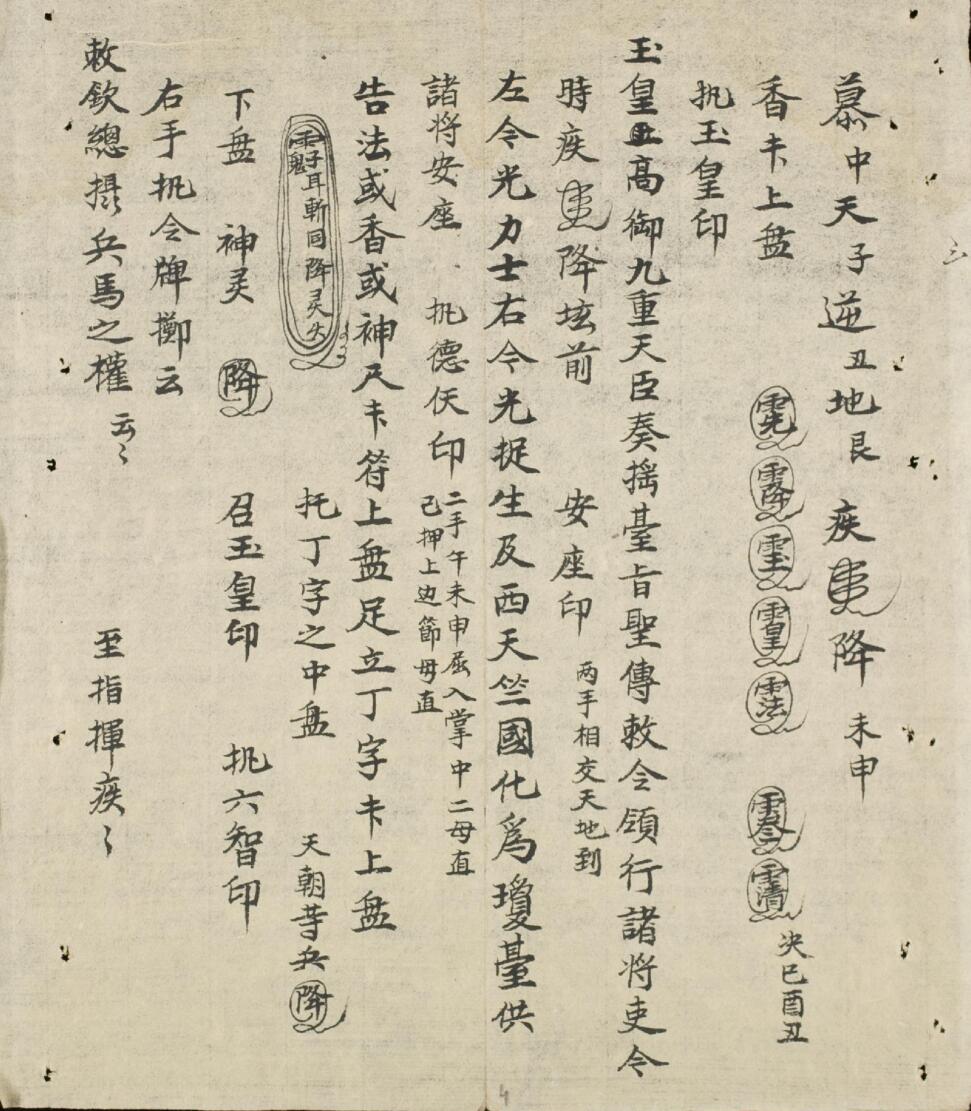 慕中天子逆丑地艮 疾 降 未申
香卡上盘 决巳酉丑
执玉皇印
玉皇至高御九重天臣奏摇臺旨聖傳敕令領行諸将吏令
時疾 降坛前 安座印 两手相交天地到
左令光力士右令光捉生及西天竺國化為瓊臺供
諸将安座 执德仸印 二手午未申屈入掌中二母直
己押上边節母直
告法或香或神尺卡符上盘足立丁字卡上盘
耳斬同降灵火 托丁字之中盘 天朝䓁兵降
下盘 神灵 降 召玉皇印 执六智印
右手执令牌擲云
敕欽總攝兵馬之權云〻 至指揮疾〻
4